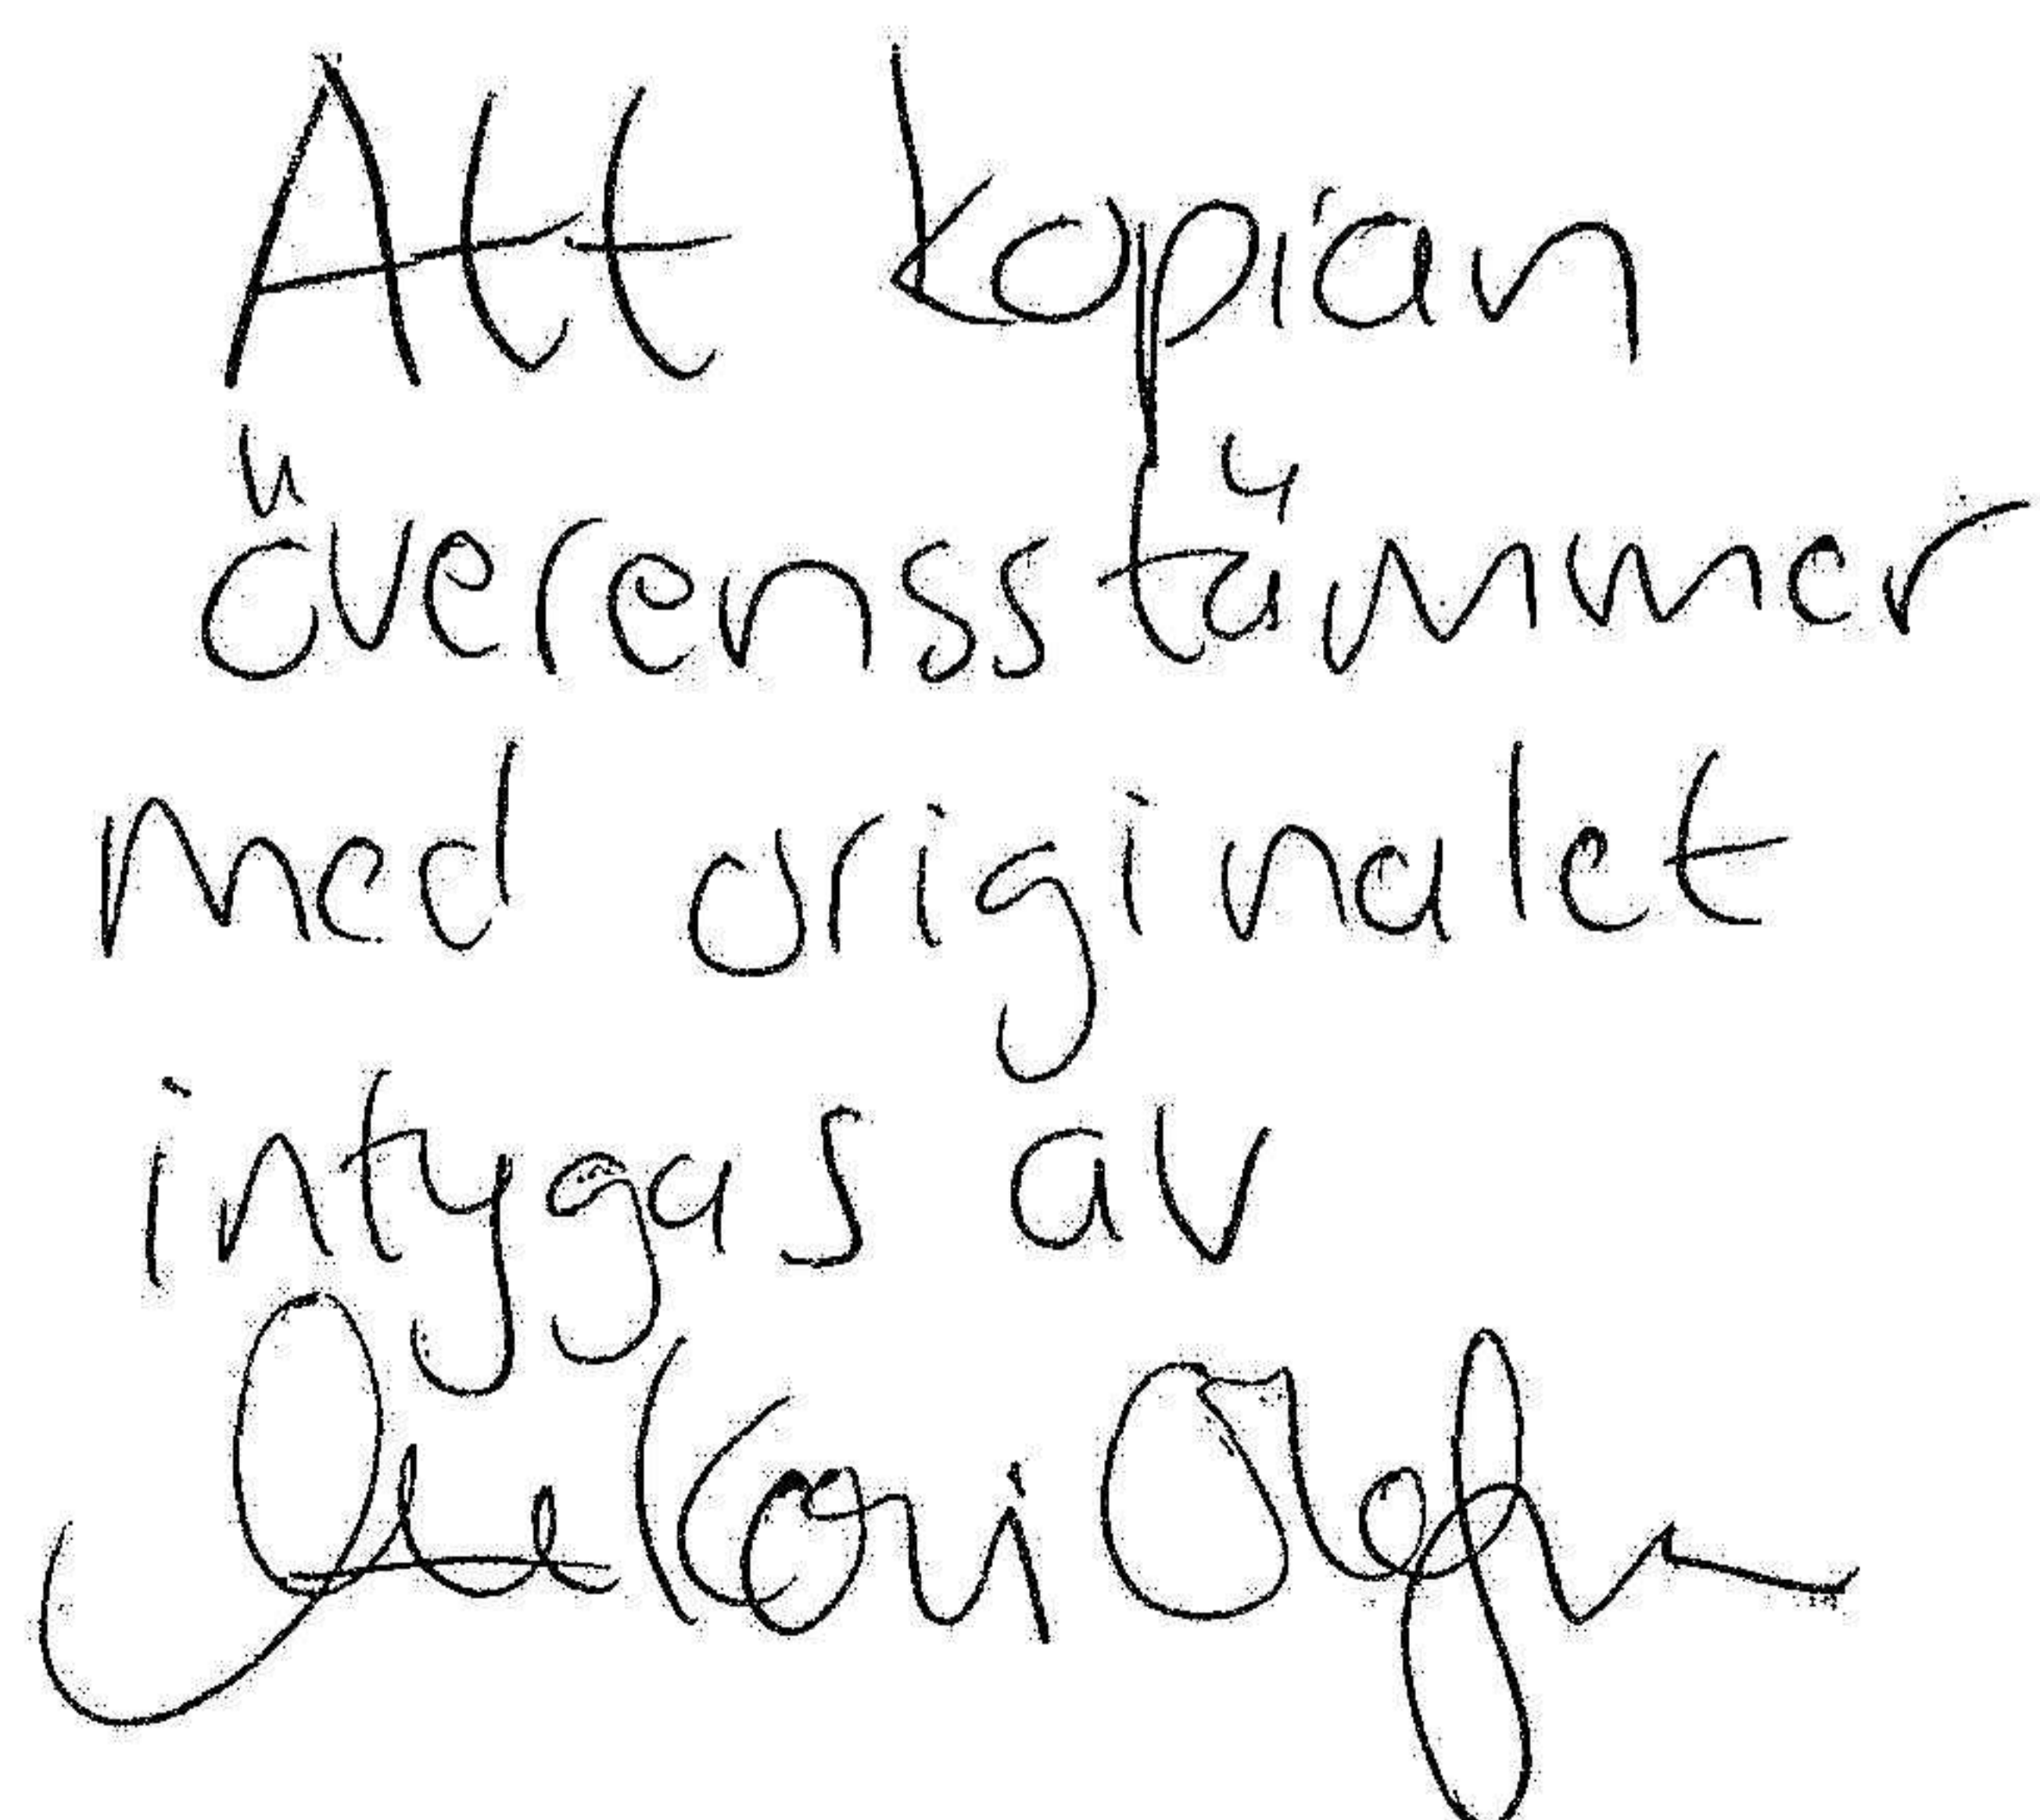 Att kopian
överensstämmer
med originalet
intygas av